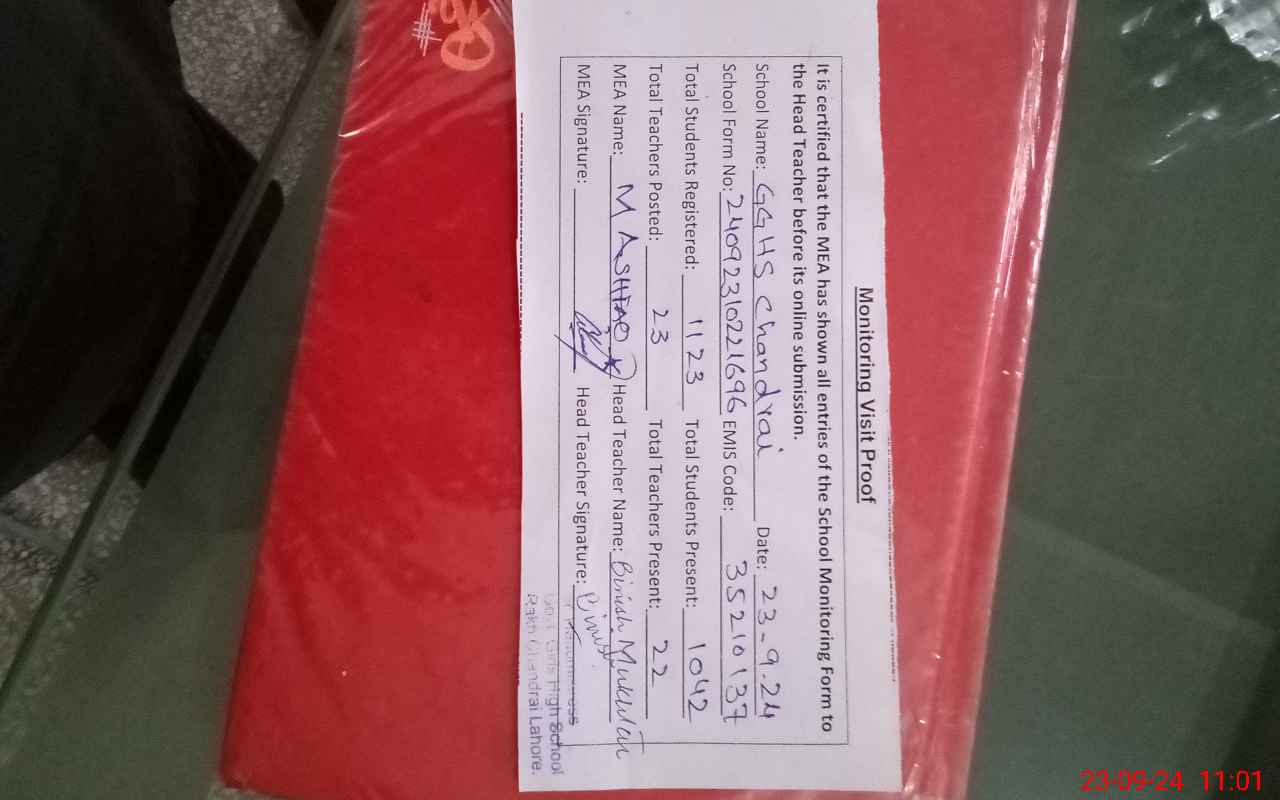 Monitoring Visit Proof
It is certified that the MEA has shown all entries of the School Monitoring Form to
the Head Teacher before its online submission.
School Name: GGHS Chandrai Date: 23-9-24
School Form No: 24092310221696 EMIS Code: 35210137
Total Students Registered: 1123 Total Students Present: 1042
Total Teachers Posted: 23 Total Teachers Present: 22
MEA Name: M ASHFAQ Head Teacher Name: Binish Mukhtar
MEA Signature: Head Teacher Signature: Binish
Govt. Girls High School
Rakh Chandrai Lahore.
23-09-24 11:01